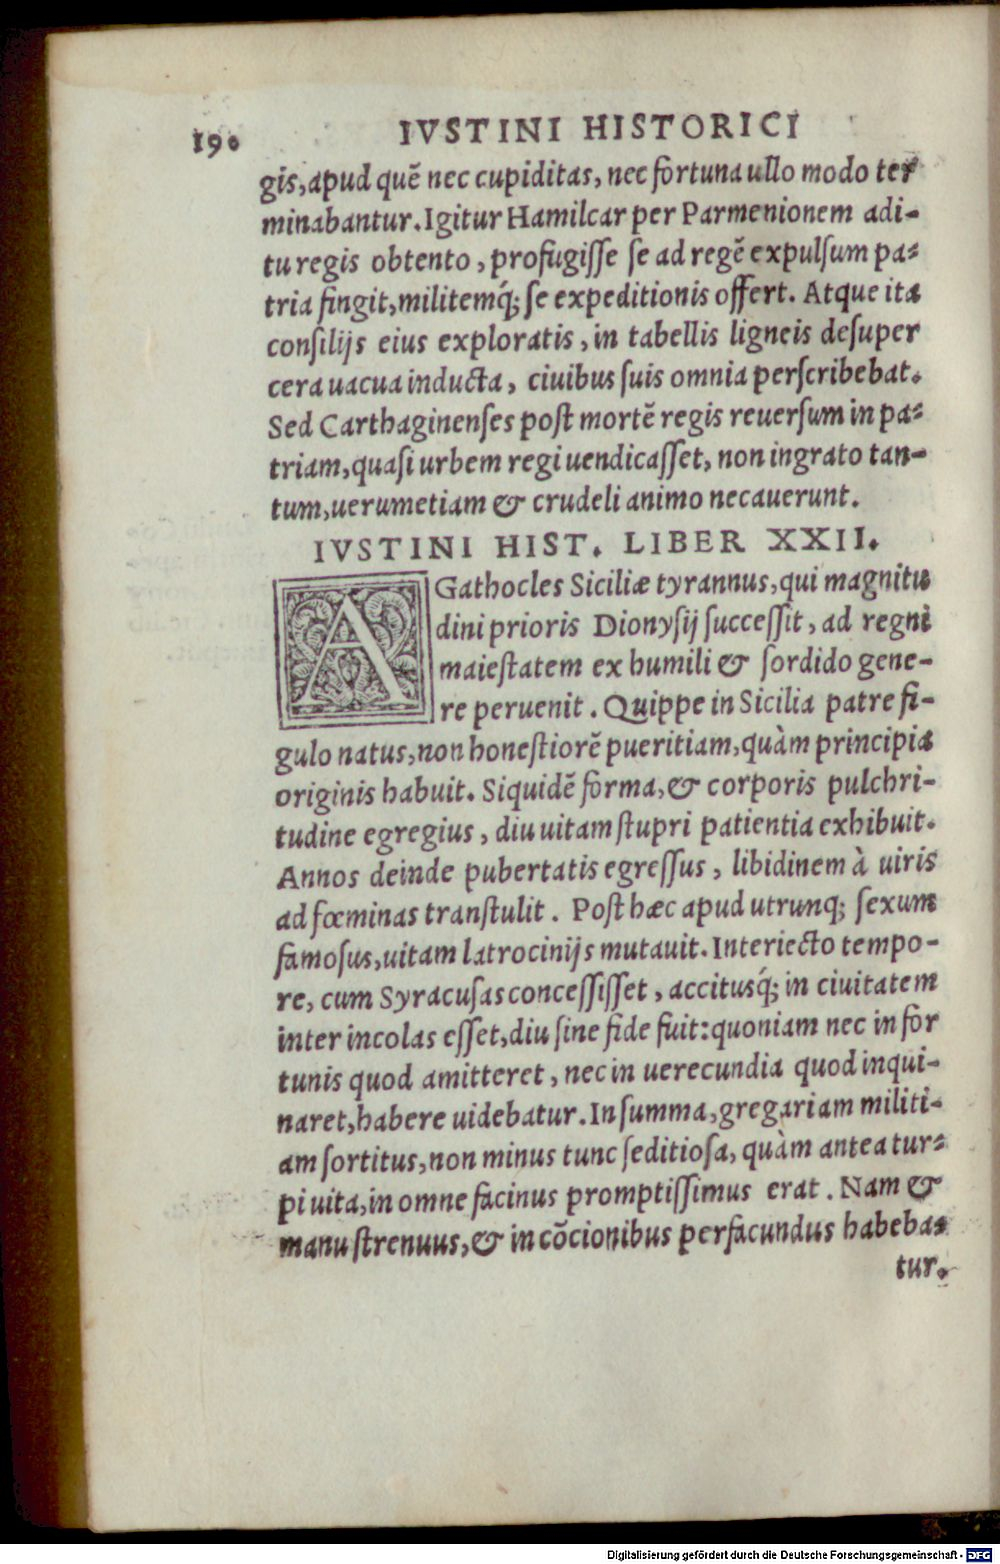 190 IVSTINI HISTORICI
gis, apud quē nec cupiditas, nec fortuna ullo modo ter
minabantur. Igitur Hamilcar per Parmenionem adi-
tu regis obtento, profugisse se ad regē expulsum pa-
tria fingit, militemq́; se expeditionis offert. Atque ita
consilijs eius exploratis, in tabellis ligneis desuper
cera uacua inducta, ciuibus suis omnia perscribebat.
Sed Carthaginenses post mortē regis reuersum in pa-
triam, quasi urbem regi uendicasset, non ingrato tan-
tum, uerumetiam & crudeli animo necauerunt.
IVSTINI HIST. LIBER XXII.
AGathocles Siciliæ tyrannus, qui magnitu
dini prioris Dionysij successit, ad regni
maiestatem ex humili & sordido gene-
re peruenit. Quippe in Sicilia patre fi-
gulo natus, non honestiorē pueritiam, quàm principia
originis habuit. Siquidē forma, & corporis pulchri-
tudine egregius, diu uitam stupri patientia exhibuit.
Annos deinde pubertatis egressus, libidinem à uiris
ad fœminas transtulit. Post hæc apud utrunq; sexum
famosus, uitam latrocinijs mutauit. Interiecto tempo-
re, cum Syracusas concessisset, accitusq́; in ciuitatem
inter incolas esset, diu sine fide fuit: quoniam nec in for
tunis quod amitteret, nec in uerecundia quod inqui-
naret, habere uidebatur. In summa, gregariam militi-
am sortitus, non minus tunc seditiosa, quàm antea tur-
pi uita, in omne facinus promptissimus erat. Nam &
manu strenuus, & in cōcionibus perfacundus habeba-
tur.
Digitalisierung gefördert durch die Deutsche Forschungsgemeinschaft - DFG